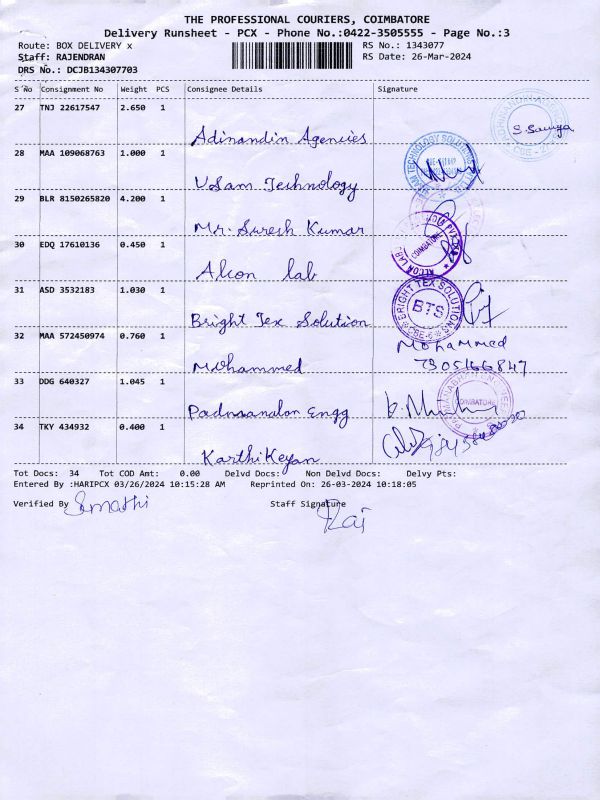 THE PROFESSIONAL COURIERS, COIMBATORE
Delivery Runsheet - PCX - Phone No.:0422-3505555 - Page No.:3
Route: BOX DELIVERY x RS No.: 1343077
Staff: RAJENDRAN RS Date: 26-Mar-2024
DRS No.: DCJB134307703
S No Consignment No Weight PCS Consignee Details Signature
27 TNJ 22617547 2.650 1
S. Sowmya
Adinandin Agencies
28 MAA 109068763 1.000 1
VSam Technology
29 BLR 8150265820 4.200 1
Mr. Suresh Kumar
30 EDQ 17610136 0.450 1
COIMBATORE
Alcon lab
31 ASD 3532183 1.030 1
BRIGHT TEX SOLUTIONS
BTS
CBE-6
Bright Tex Solution
32 MAA 572450974 0.760 1
Mohammed
7905166847
Mohammed
33 DDG 640327 1.045 1
COIMBATORE
Padnaanalon Engg
34 TKY 434932 0.400 1
KarthiKeyan
Tot Docs: 34 Tot COD Amt: 0.00 Delvd Docs: Non Delvd Docs: Delvy Pts:
Entered By :HARIPCX 03/26/2024 10:15:28 AM Reprinted On: 26-03-2024 10:18:05
Verified By Sumathi Staff Signature
Raj